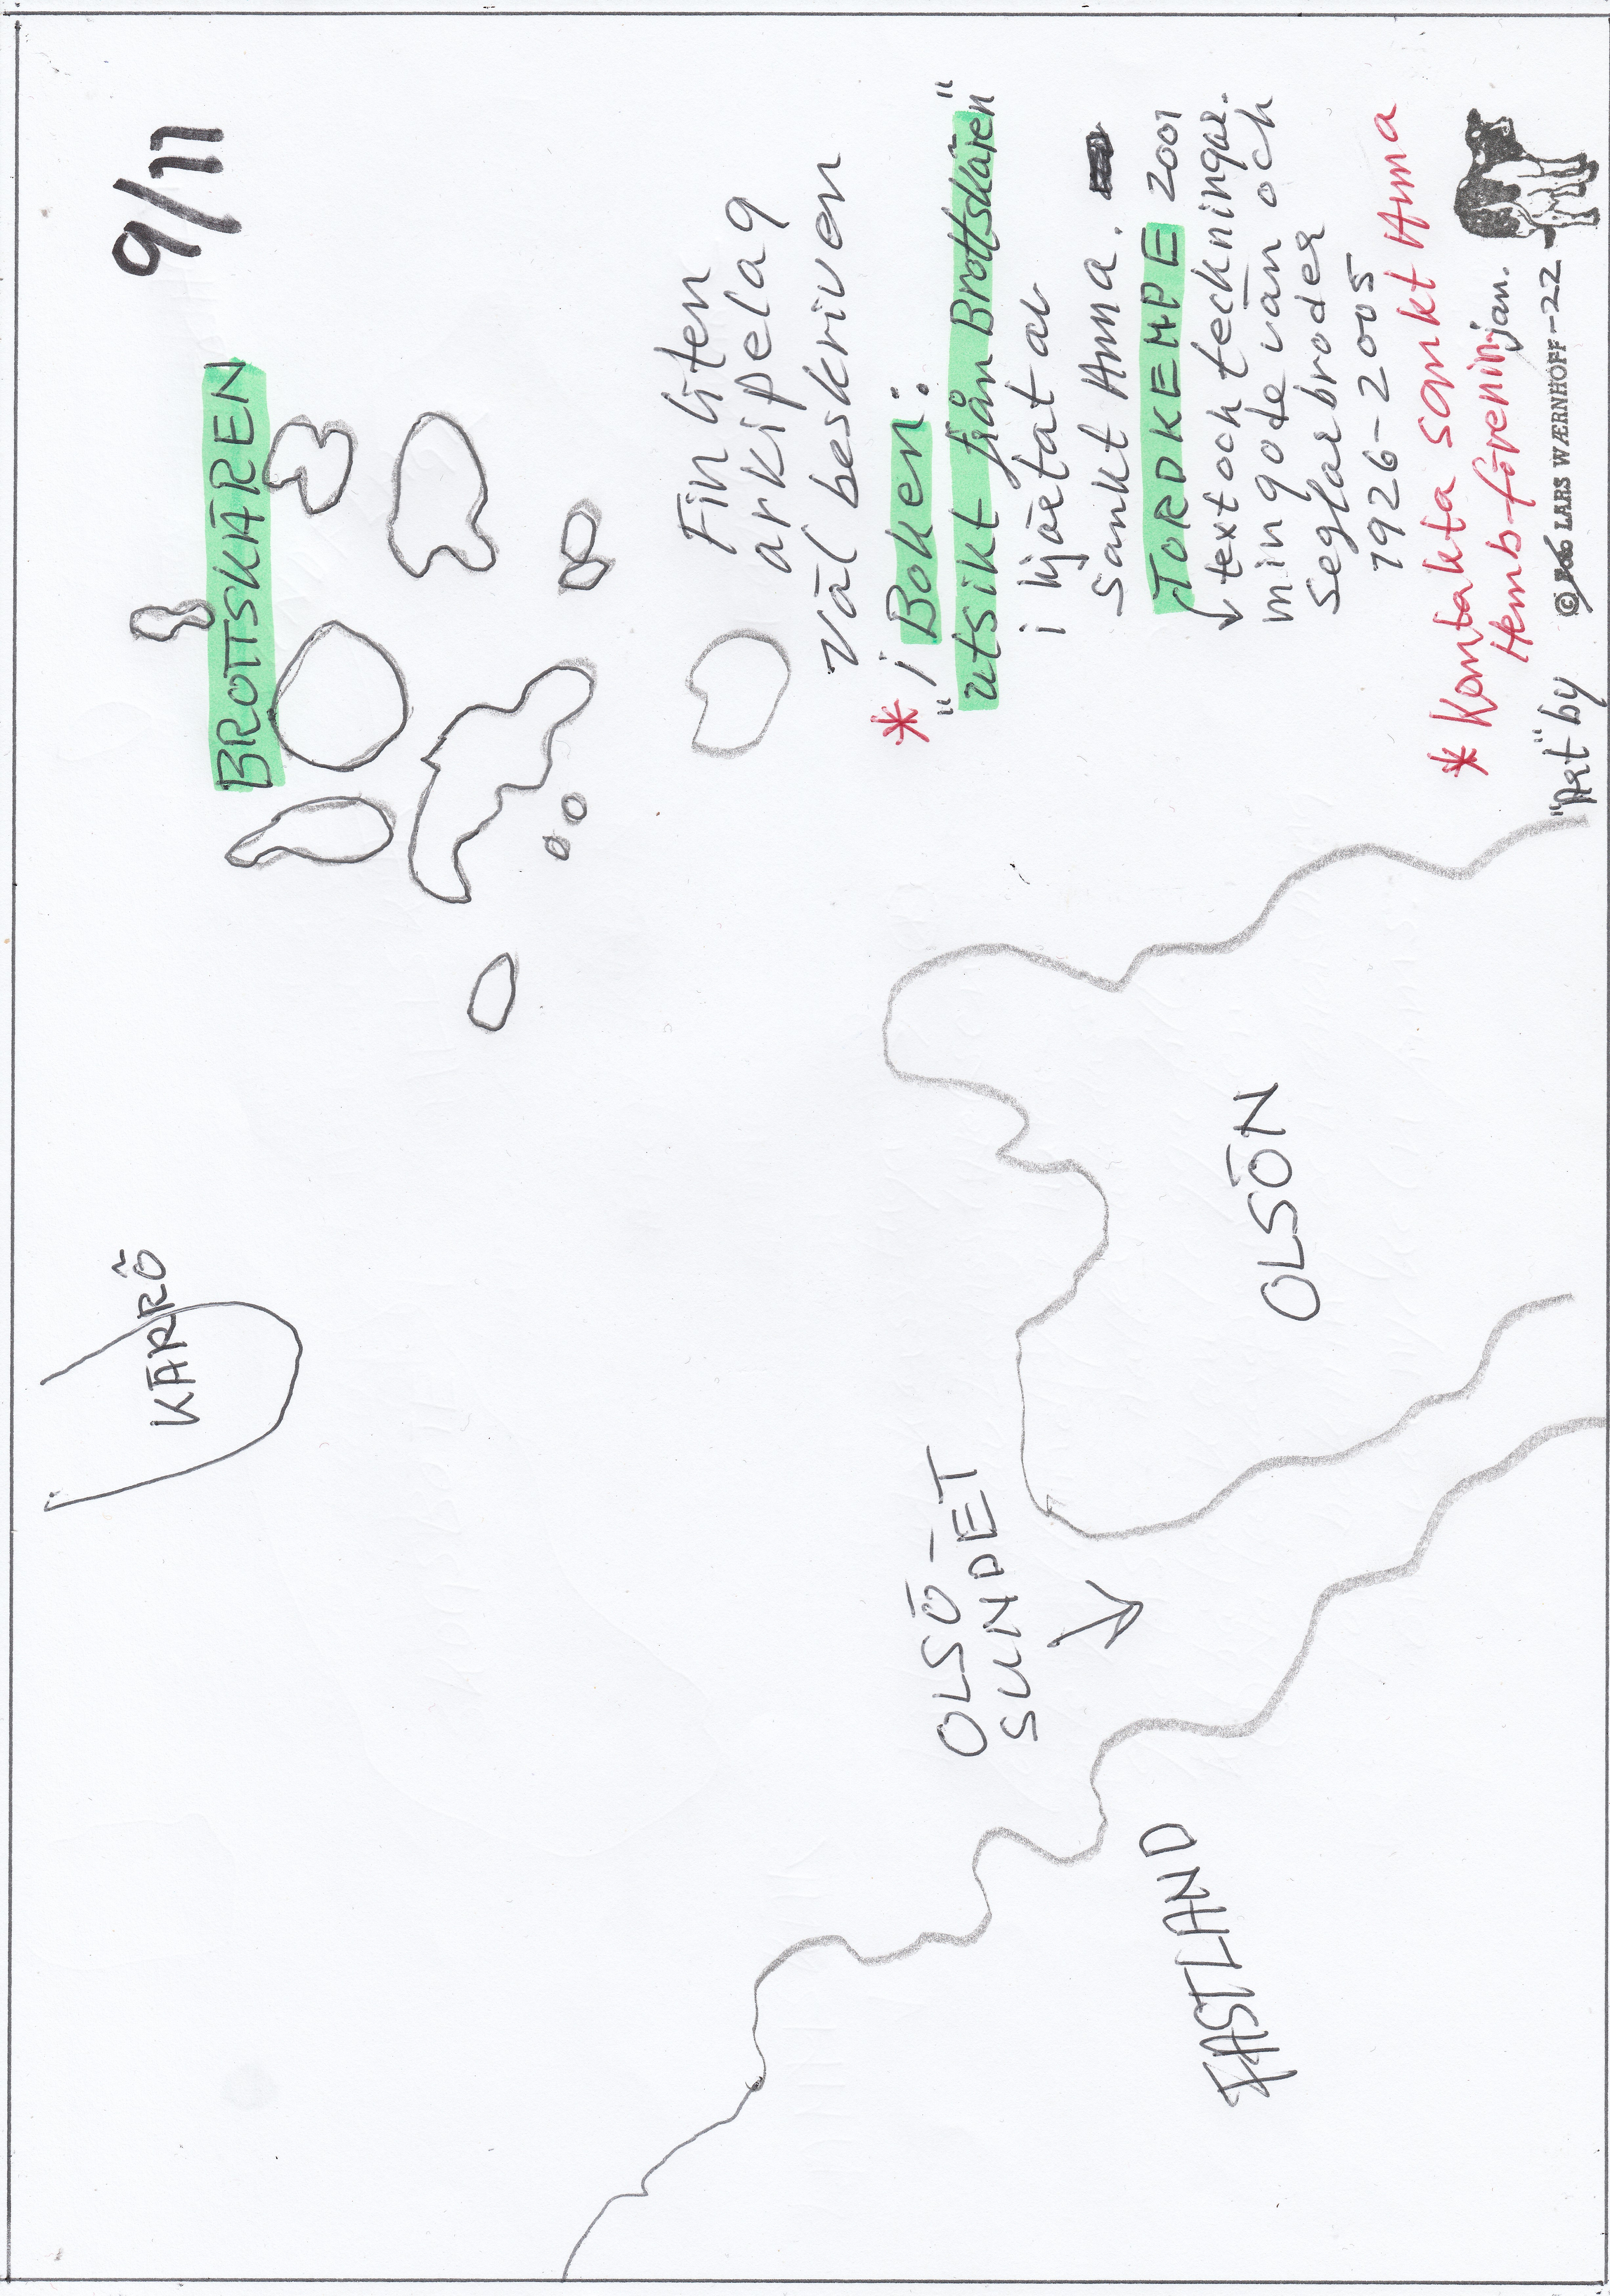 9/11
BROTTSKÄREN
KÄRRÖ
Fin liten
arkipelag
väl beskriven
* i Boken:
"utsikt från Brottskären"
i hjärtat av
Sankt Anna.
TORD KEMPE 2001
text och teckningar.
min gode vän och
Seglarbroder
1926-2005
* Kontakta Sankt Anna
Hemb-förening
jan.
"Art" by © LARS WÆRNHOFF-22
OLSÖ-
SUNDET
OLSÖN
FASTLAND